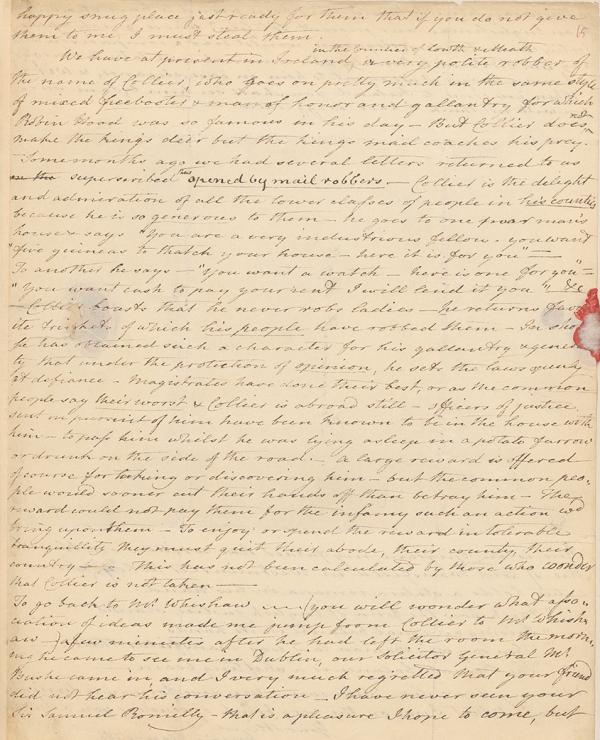 happy snug place just ready for them that if you do not give
them to me I must steal them.
15
in the counties of Louth & Meath
We have at present in Ireland, a very polite robber of
the name of Collier, who goes on pretty much in the same style
of mixed freebooter & man of honor and gallantry for which
Robin Hood was so famous in his day – But Collier does not
make the kings deer but the kings mail coaches his prey.
Some months ago we had several letters returned to us
superscribed thus opened by mail robbers. – Collier is the delight
and admiration of all the lower classes of people in his counties
because he is so generous to them – he goes to one poor man's
house & says "You are a very industrious fellow – you want
"five guineas to thatch your house – here it is for you —
To another he says – "You want a watch – here is one for you" –
"You want cash to pay your rent I will lend it you" &c
– Collier boasts that he never robs ladies – he returns
ite trinkets of which his people have robbed them – In
he has obtained such a character for his gallantry &
ty that under the protection of opinion, he sets the laws
at defiance – Magistrates have done their best, or as the common
people say their worst & Collier is abroad still – officers of justice
sent in pursuit of him have been known to be in the house with
him – to pass him whilst he was lying asleep in a potato furrow
or drunk on the side of the road. – A large reward is offered
of course for taking or discovering him – but the common peo-
ple would sooner cut their hands off than betray him – The
reward could not pay them for the infamy such an action wd
bring upon them – To enjoy or spend the reward in tolerable
tranquillity they must quit their abode, their county, their
country – This has not been calculated by those who wonder
that Collier is not taken —
To go back to Mr Whishaw — (you will wonder what asso-
ciation of ideas made me jump from Collier to Mr Whish-
aw) a few minutes after he had left the room the morn-
ing he came to see me in Dublin, our Solicitor General Mr
Bushe came in, and I very much regretted that your friend
did not hear his conversation – I have never seen your
Sir Samuel Romilly – that is a pleasure I hope to come, but